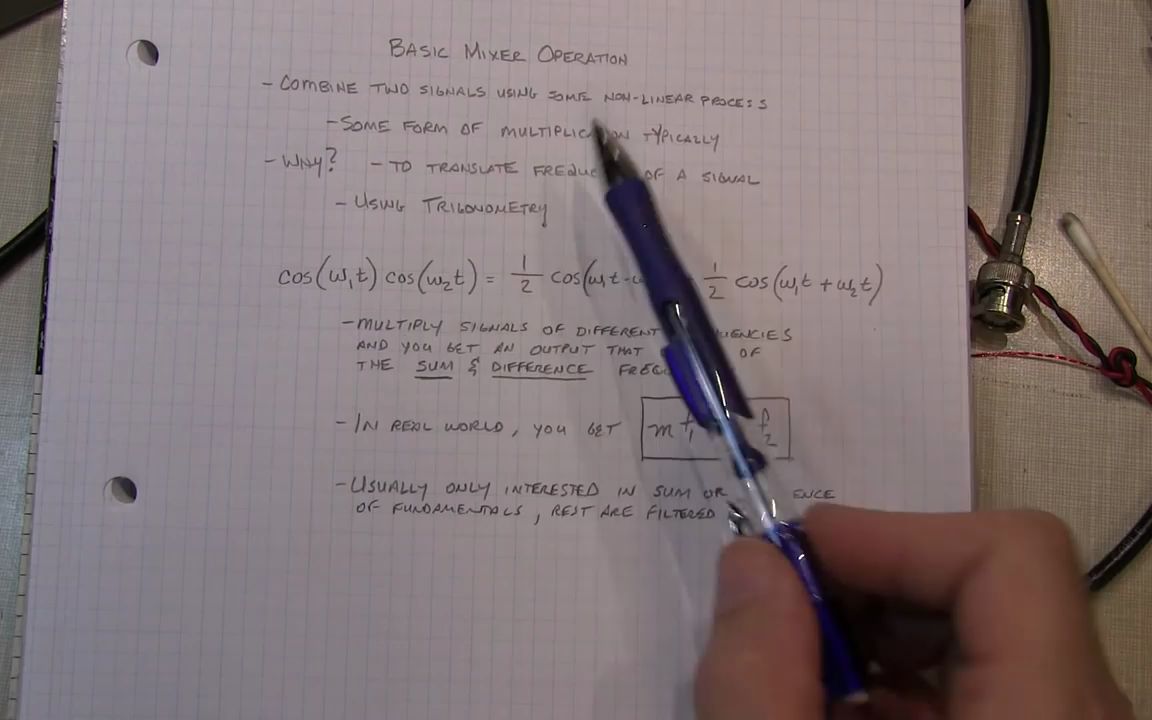 BASIC MIXER OPERATION
- COMBINE TWO SIGNALS USING SOME NON-LINEAR PROCESS
- SOME FORM OF TYPICALLY
- WHY? - TO TRANSLATE OF A SIGNAL
- USING TRIGONOMETRY
cos(ω₁t) cos(ω₂t) = 1/2 cos(ω₁t - 1/2 cos(ω₁t + ω₂t)
- MULTIPLY SIGNALS OF DIFFERENT
AND YOU GET AN OUTPUT THAT OF
THE SUM & DIFFERENCE
- IN REAL WORLD, YOU GET m f₁ f₂
- USUALLY ONLY INTERESTED IN SUM OR
OF FUNDAMENTALS, REST ARE FILTERED